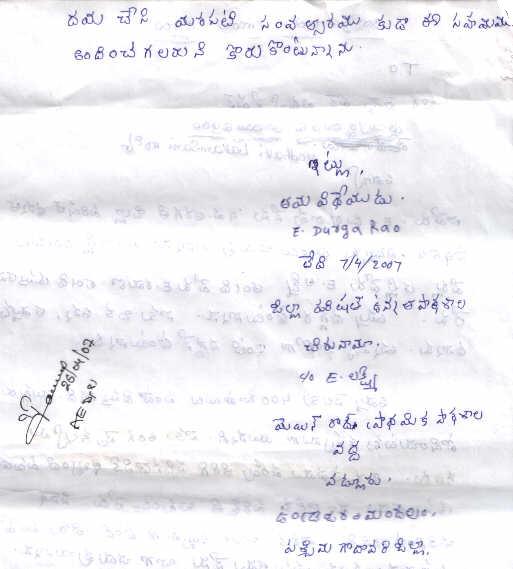 దయ చేసి మరుసటి సంవత్సరము కుడా ఈ సహాయము
అందించ గలరు ని కోరుకొంటున్నాను.
ఇట్లు,
తమ విధేయుడు.
E. Durga Rao
తేది 7/4/2007
జిల్లా పరిషత్ ఉన్నత పాఠశాల
చిరునామా.
c/o E. లక్ష్మి
మెయిన్ రోడ్ ప్రాథమిక పాఠశాల
వద్ద
వడ్లూరు.
మండలం.
పశ్చిమ గోదావరి జిల్లా.
26/04/07